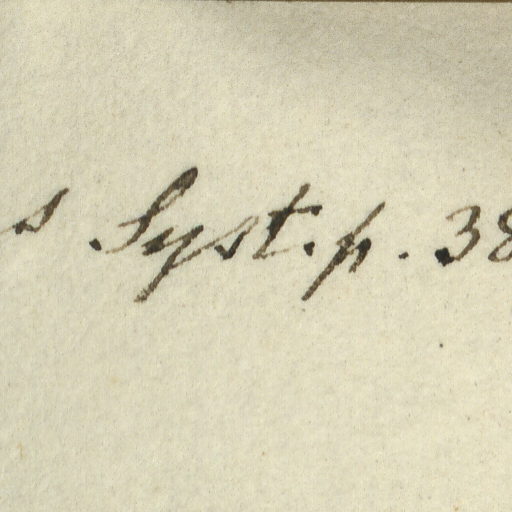 s Syst. p. 38